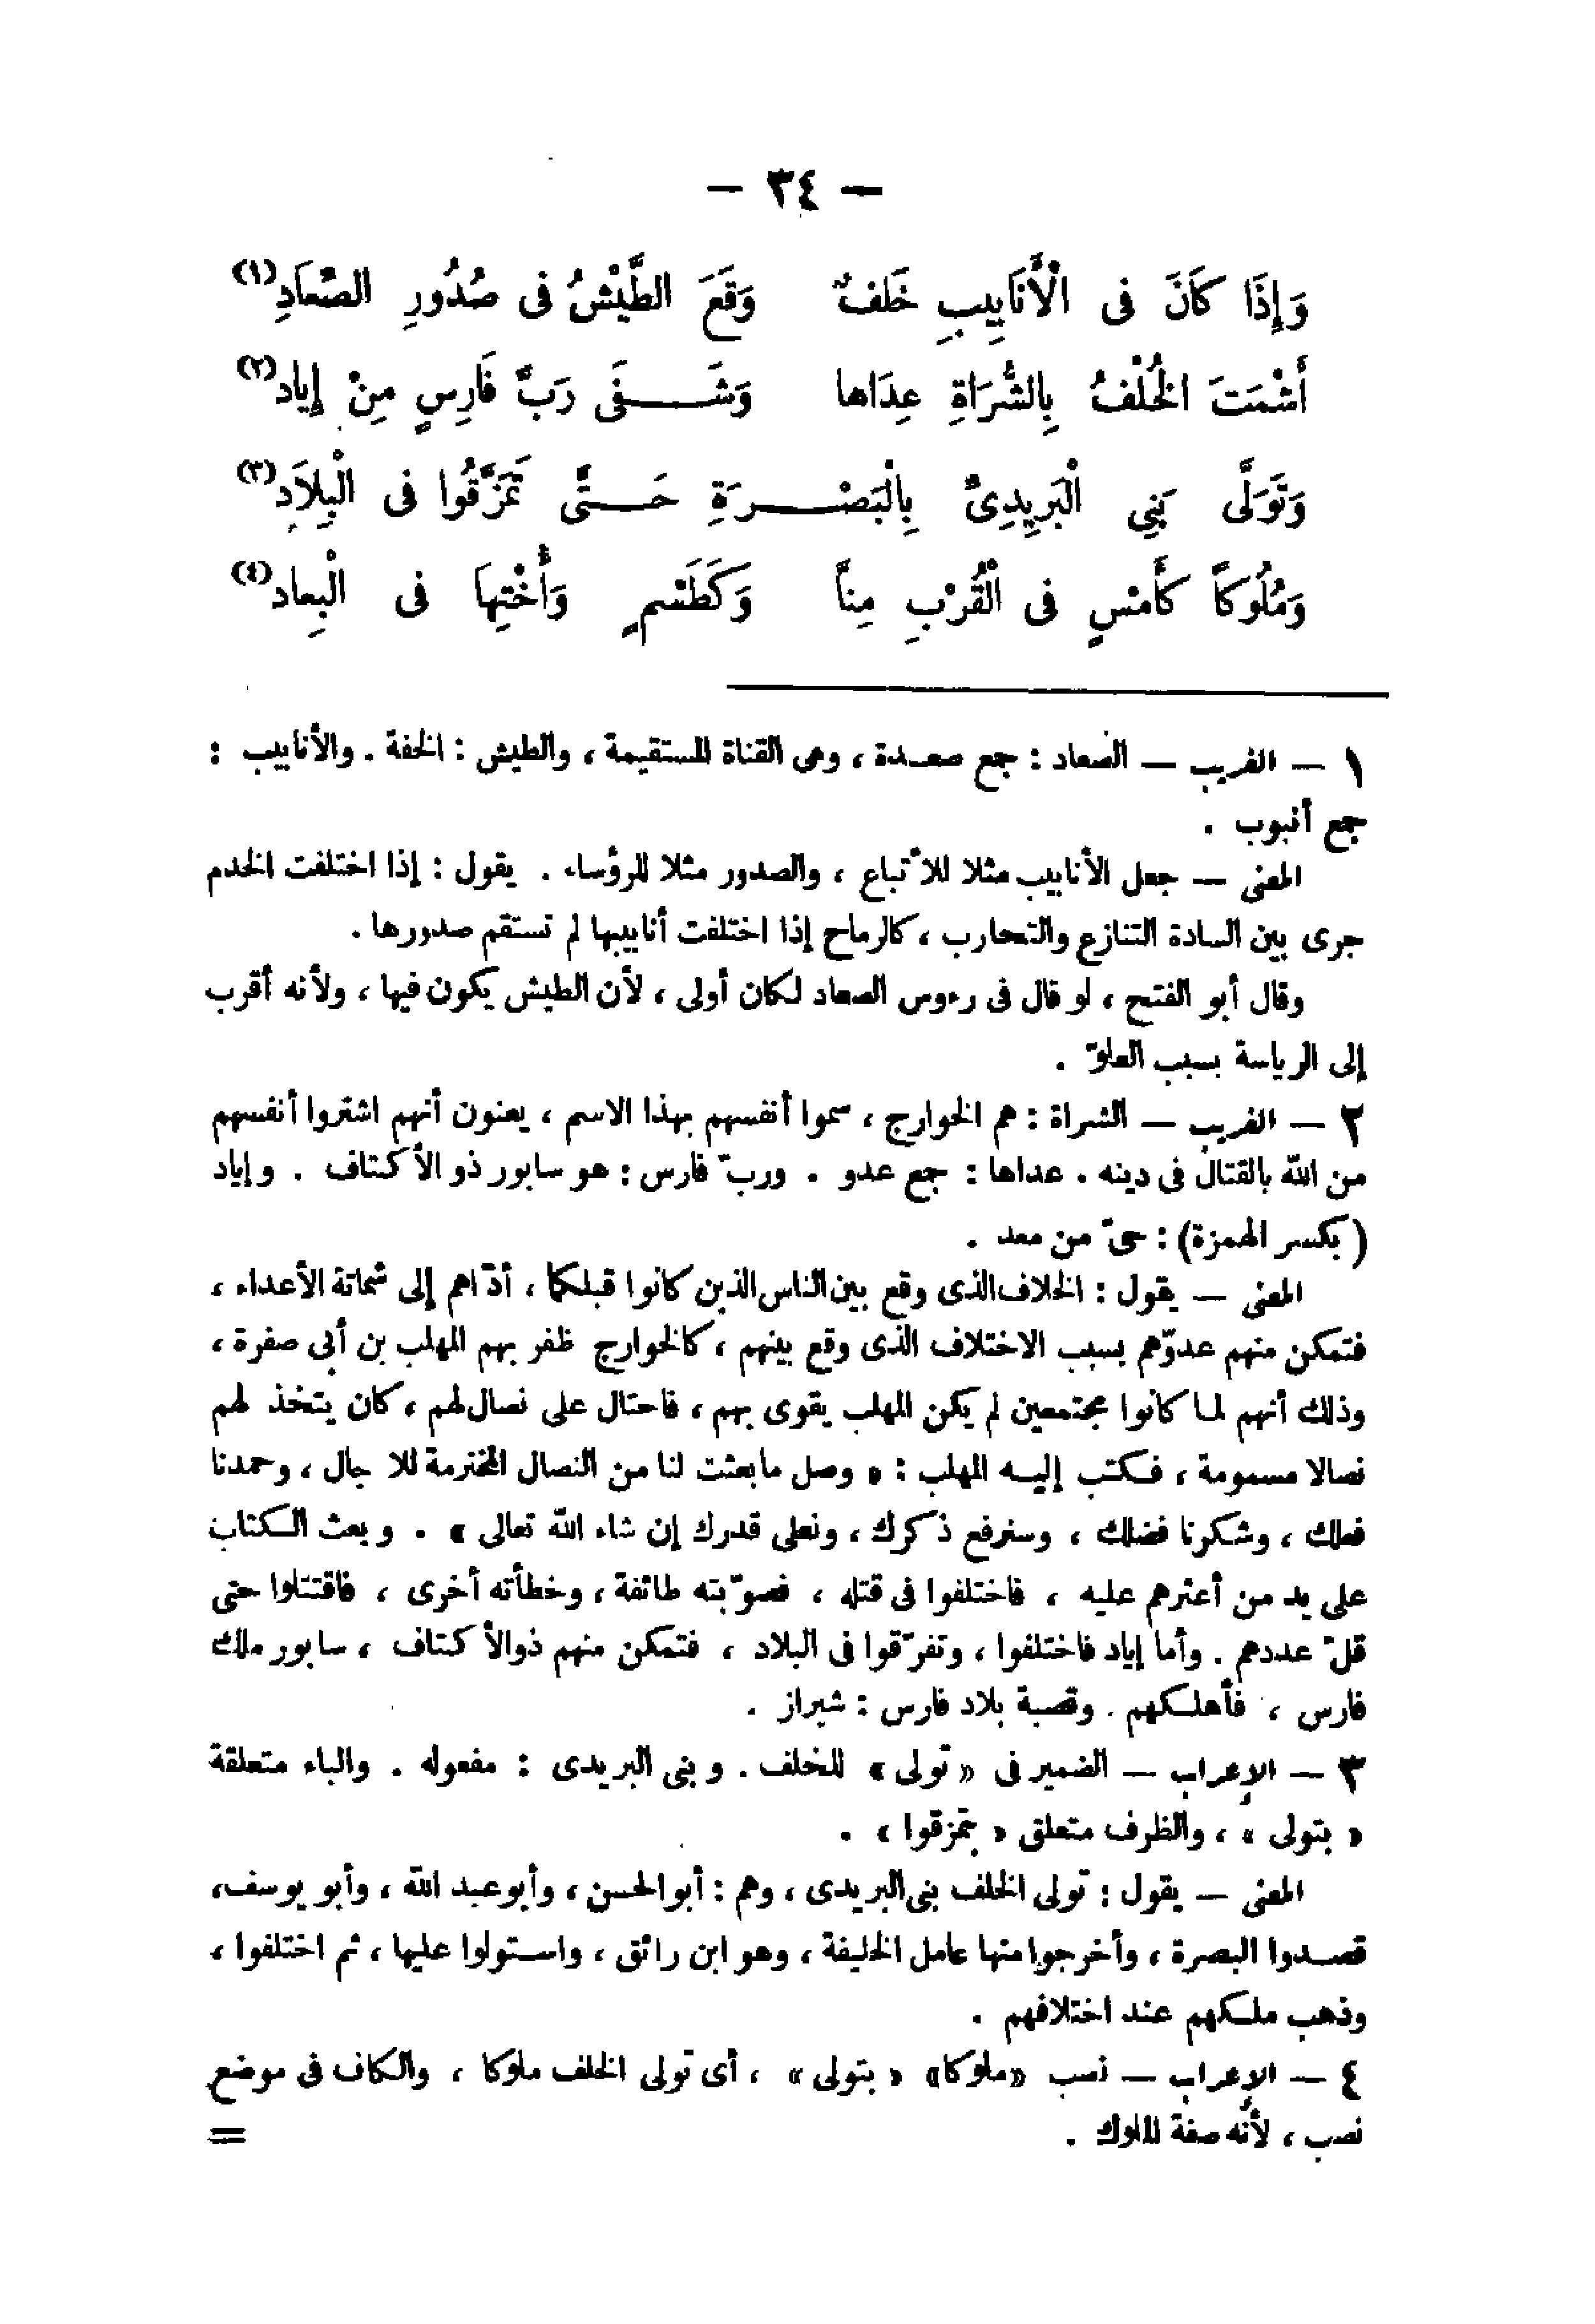 — ٣٤ —
وَإِذَا كَانَ فى الْأَنَابِيبِ خَلفٌ وَقَعَ الطَّيْشُ فى صُدُورِ الصِّعَادِ(١)
أَشْمَتَ الخُلْفُ بِالشُّرَاةِ عِدَاها وَشَـفَى رَبَّ فَارِسٍ مِنْ إِياد(٢)
وَتَوَلَّى بَنِى الْبَرِيدِىِّ بِالْبَصْـرَةِ حَـتَّى تَمَزَّقُوا فى الْبِلاَدِ(٣)
وَمُلُوكاً كَأَمْسٍ فى الْقُرْبِ مِنّاً وَكَطَسْمٍ وَأُخْتِهاَ فى الْبِعاد(٤)
١ — الغريب — الصعاد : جمع صعـدة ، وهى القناة المستقيمة ، والطيش : الخفة . والأنابيب :
جمع أنبوب .
المعنى — جعل الأنابيب مثلا للأتباع ، والصدور مثلا للرؤساء . يقول : إذا اختلفت الخدم
جرى بين السادة التنازع والتحارب ، كالرماح إذا اختلفت أنابيبها لم تستقم صدورها .
وقال أبو الفتح ، لو قال فى رءوس الصعاد لكان أولى ، لأن الطيش يكون فيها ، ولأنه أقرب
إلى الرياسة بسبب العلوّ .
٢ — الغريب — الشراة : هم الخوارج ، سموا أنفسهم بهذا الاسم ، يعنون أنهم اشتروا أنفسهم
من الله بالقتال فى دينه . عداها : جمع عدو . وربّ فارس : هو سابور ذو الأكتاف . وإياد
(بكسر الهمزة) : حىّ من معد .
المعنى — يقول : الخلاف الذى وقع بين الناس الذين كانوا قبلكما ، أدّاهم إلى شماتة الأعداء ،
فتمكن منهم عدوّهم بسبب الاختلاف الذى وقع بينهم ، كالخوارج ظفر بهم المهلب بن أبى صفرة ،
وذلك أنهم لما كانوا مجتمعين لم يكن المهلب يقوى بهم ، فاحتال على نصال لهم ، كان يتخذ لهم
نصالا مسمومة ، فـكتب إليـه المهلب : « وصل ما بعثت لنا من النصال المخترمة للآجال ، وحمدنا
فعلك ، وشكرنا فضلك ، وسنرفع ذكرك ، ونعلى قدرك إن شاء الله تعالى » . وبعث الـكتاب
على يد من أعثرهم عليه ، فاختلفوا فى قتله ، فصوّبته طائفة ، وخطأته أخرى ، فاقتتلوا حتى
قلّ عددهم . وأما إياد فاختلفوا ، وتفرّقوا فى البلاد ، فتمكن منهم ذوالأكتاف ، سابور ملك
فارس ، فأهلـكهم . وقصبة بلاد فارس : شيراز .
٣ — الإعراب — الضمير فى «تولى» للخلف . وبنى البريدى : مفعوله . والباء متعلقة
« بتولى » ، والظرف متعلق « بتمزقوا » .
المعنى — يقول : تولى الخلف بنى البريدى ، وهم : أبوالحسن ، وأبوعبد الله ، وأبو يوسف،
قصـدوا البصرة ، وأخرجوا منها عامل الخليفة ، وهو ابن رائق ، واسـتولوا عليها ، ثم اختلفوا ،
وذهب ملـكهم عند اختلافهم .
٤ — الإعراب — نصب «ملوكا» « بتولى» ، أى تولى الخلف ملوكا ، والكاف فى موضع
نصب ، لأنه صفة للملوك . =